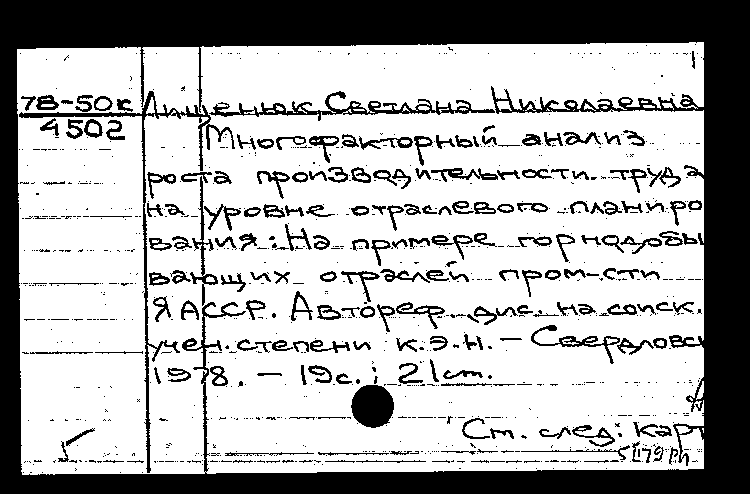 78-50к Лищенюк, Светлана Николаевна
4502
Многофакторный анализ
роста производительности труда
на уровне отраслевого планиро
вания: На примере горнодобы
вающих отраслей пром-сти
ЯАССР. Автореф. дис. на соиск.
учен. степени к.э.н. — Свердловс
1978. — 19с.; 21см.
См. след: карт